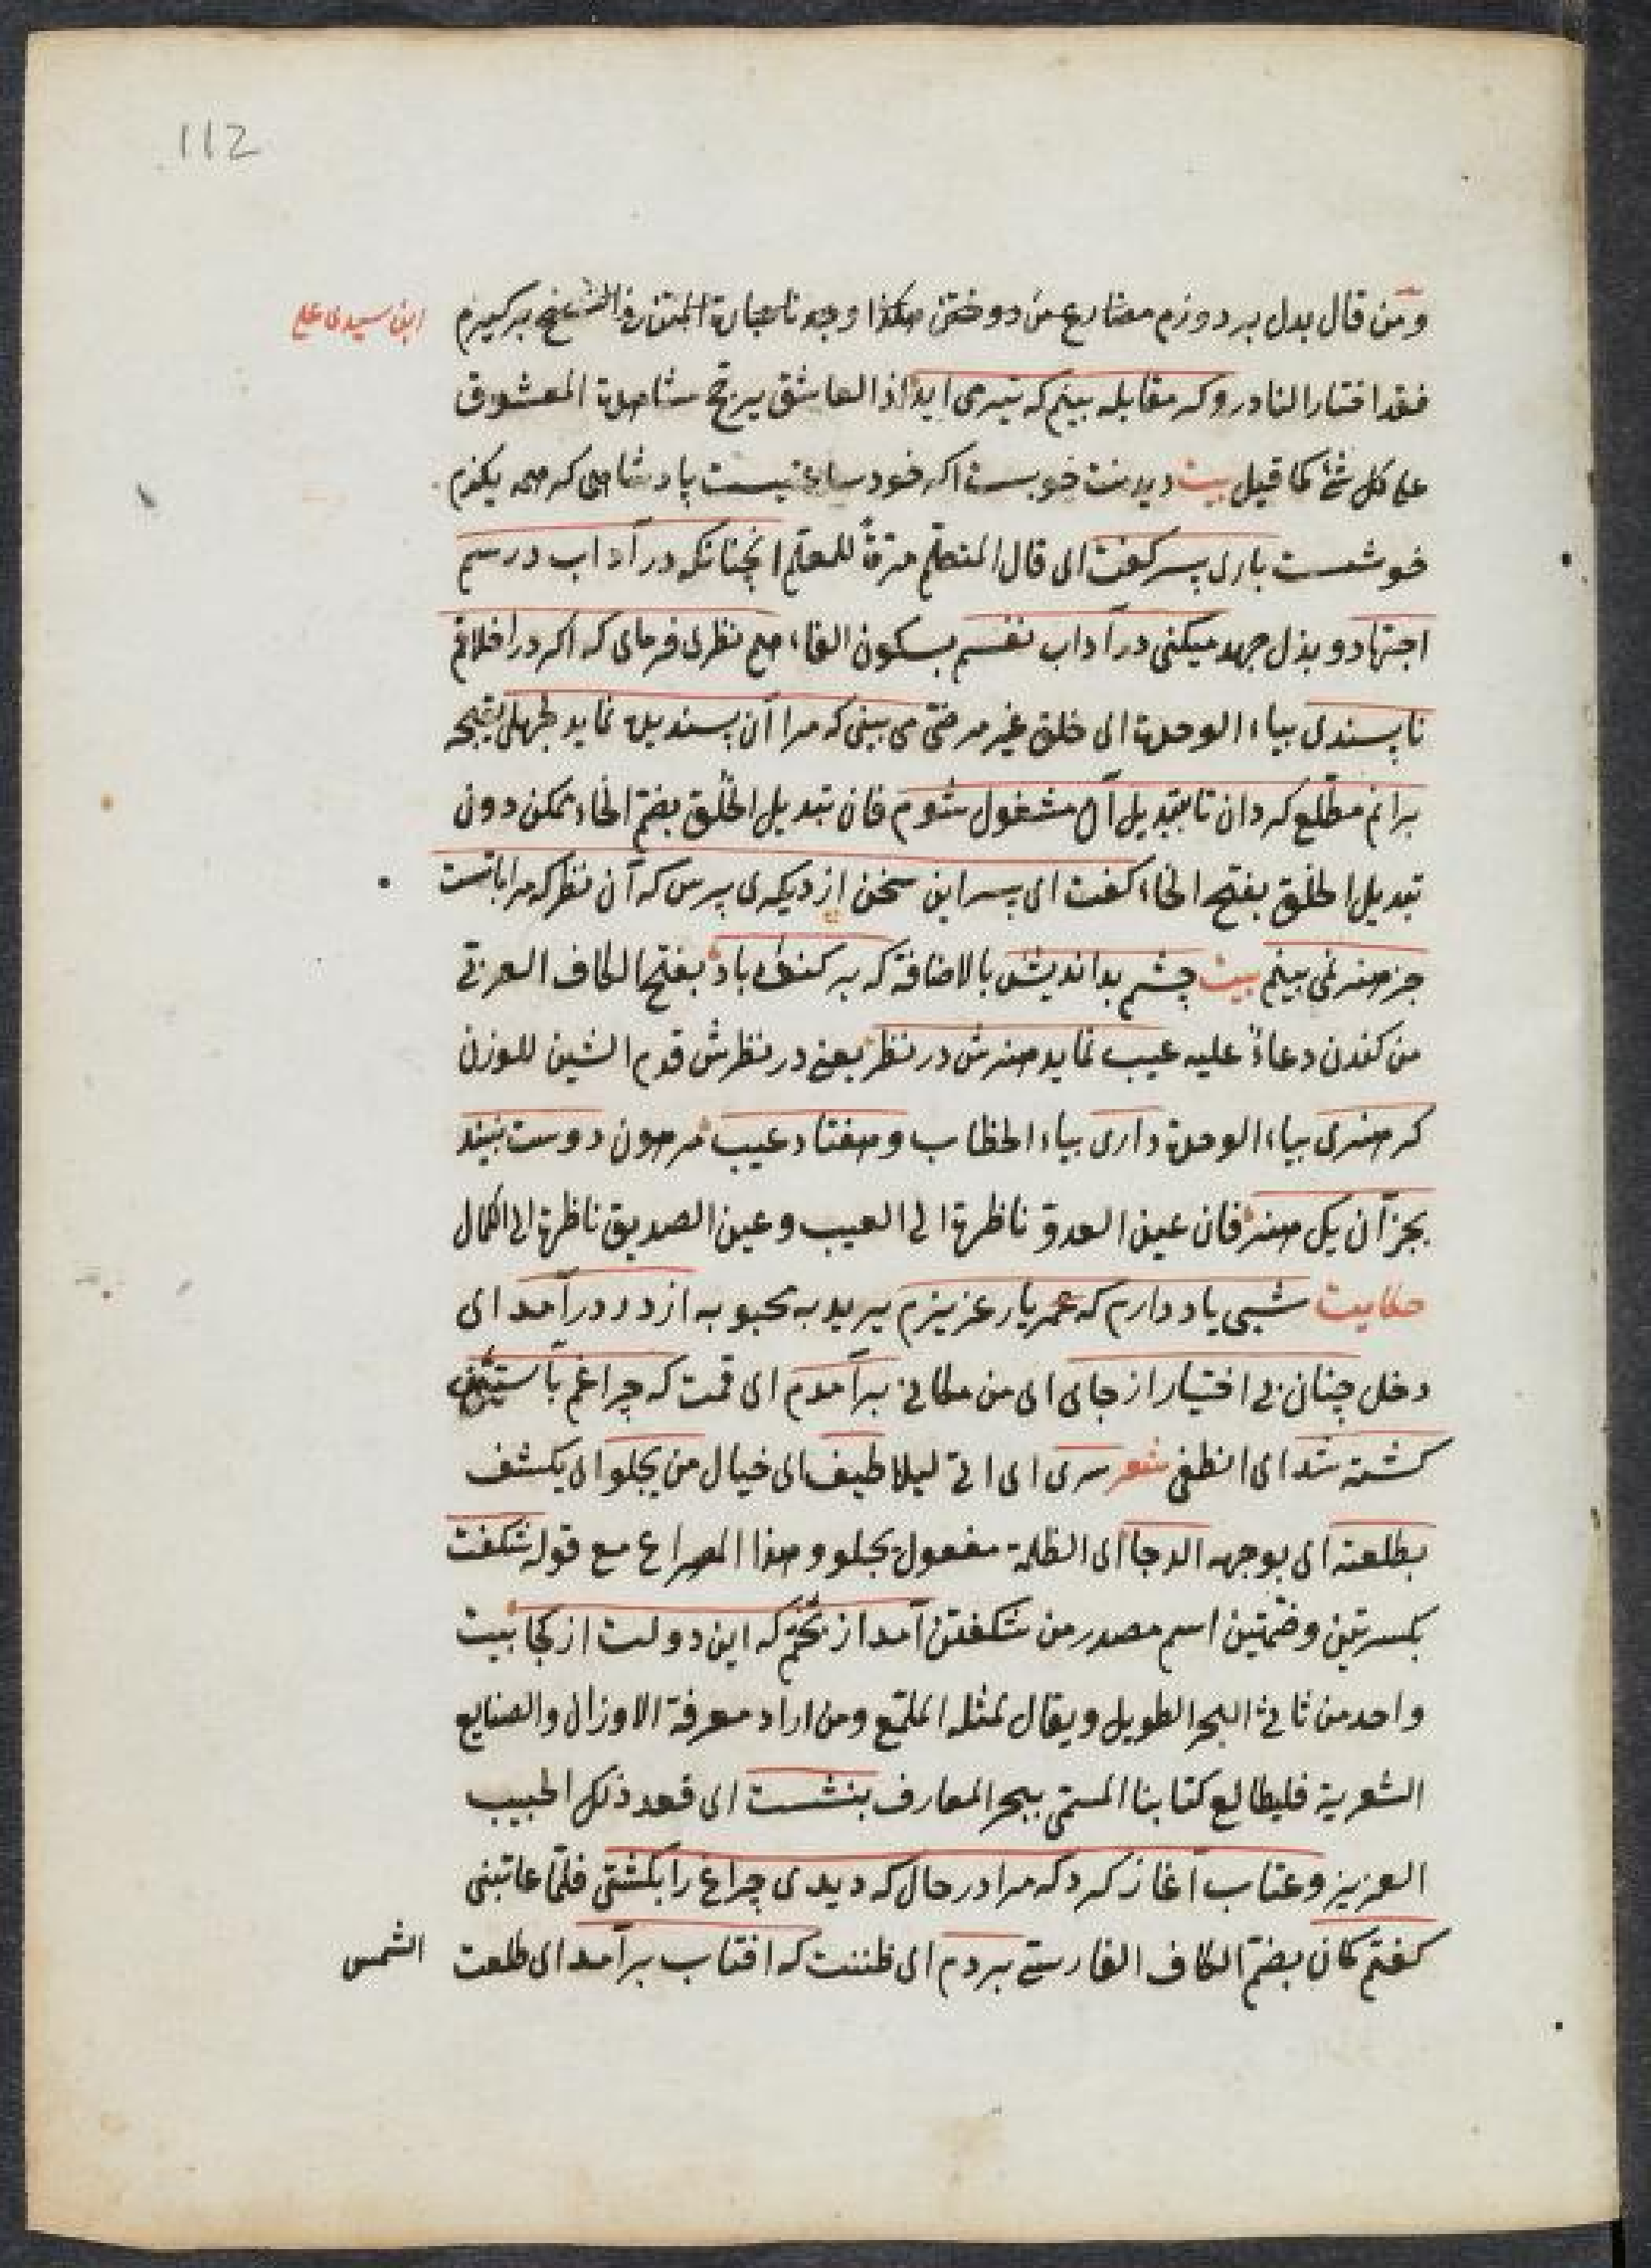 112
ومن قال بدل بر دوزم مضارع من دوختن هكذا وجدنا عبارة المتن في النسخ بركيرم
ابن سيدى على
فقد اختار النادر وكر مقابله بينم كه تير مى ايد اذ العاشق يرجح مشاهدة المعشوق
على كل شئ كما قيل بيت ديدنت خوبست اكر خود ساعتيست پادشاهى كر همه يكدم
خوشست بارى پسر كفت اى قال المتعلم مرة للمعلم انچنانكه در آداب درسم
اجتهاد و بذل جهد ميكنى در آداب نفسم بسكون الفاء هم نظرى فرماى كه اكر در اخلاقم
ناپسندى بياء الوحدة اى خلق غير مرضى مى بينى كه مرا آن پسنديده نمايد لجهلى بقبحه
برانم مطلع كردان تا بتبديل آن مشغول شوم فان تبديل الخلق بضم الخاء ممكن دون
تبديل الخلق بفتح الخاء كفت اى پسر اين سخن از ديكرى پرس كه آن نظر كه مرا باتست
جز هنر نمى بينم بيت چشم بدانديش بالاضافة كه بر كنده باد بفتح الكاف العربى
من كندن دعاء عليه عيب نمايد هنرش در نظر يعنى در نظرش قدم الشين للوزن
كر هنرى بياء الوحدة دارى بياء الخطاب و هفتاد عيب هر هون دوست نبيند
بجز آن يك هنر فان عين العدو ناظرة الى العيب وعين الصديق ناظرة الى الكمال
حكايت شبى ياد دارم كه عمر يار عزيزم يريد به محبوبه از در درآمد اى
دخل چنان بى اختيار از جاى اى من مكانى برآمدم اى قمت كه چراغم بآستين
كشته شد اى انطفى شعر سرى اى اتى ليلا طيف اى خيال من يجلو اى يكشف
بطلعته اى بوجهه الدجا اى الظلمة مفعول يجلو و هذا المصراع مع قوله شكفت
بكسرتين وضمتين اسم مصدر من شكفتن آمد از بختم كه اين دولت از كجا بيت
واحد من ثانى البحر الطويل ويقال لمثله الملمع ومن اراد معرفة الاوزان والصنايع
الشعرية فليطالع كتابنا المسمى ببحر المعارف بنشست اى قعد ذلك الحبيب
العزيز و عتاب آغاز كرد كه مرا در حال كه ديدى چراغ را بكشتى فلما عاتبنى
كفتم كمان بضم الكاف الفارسى بردم اى ظننت كه افتاب برآمد اى طلعت
الشمس